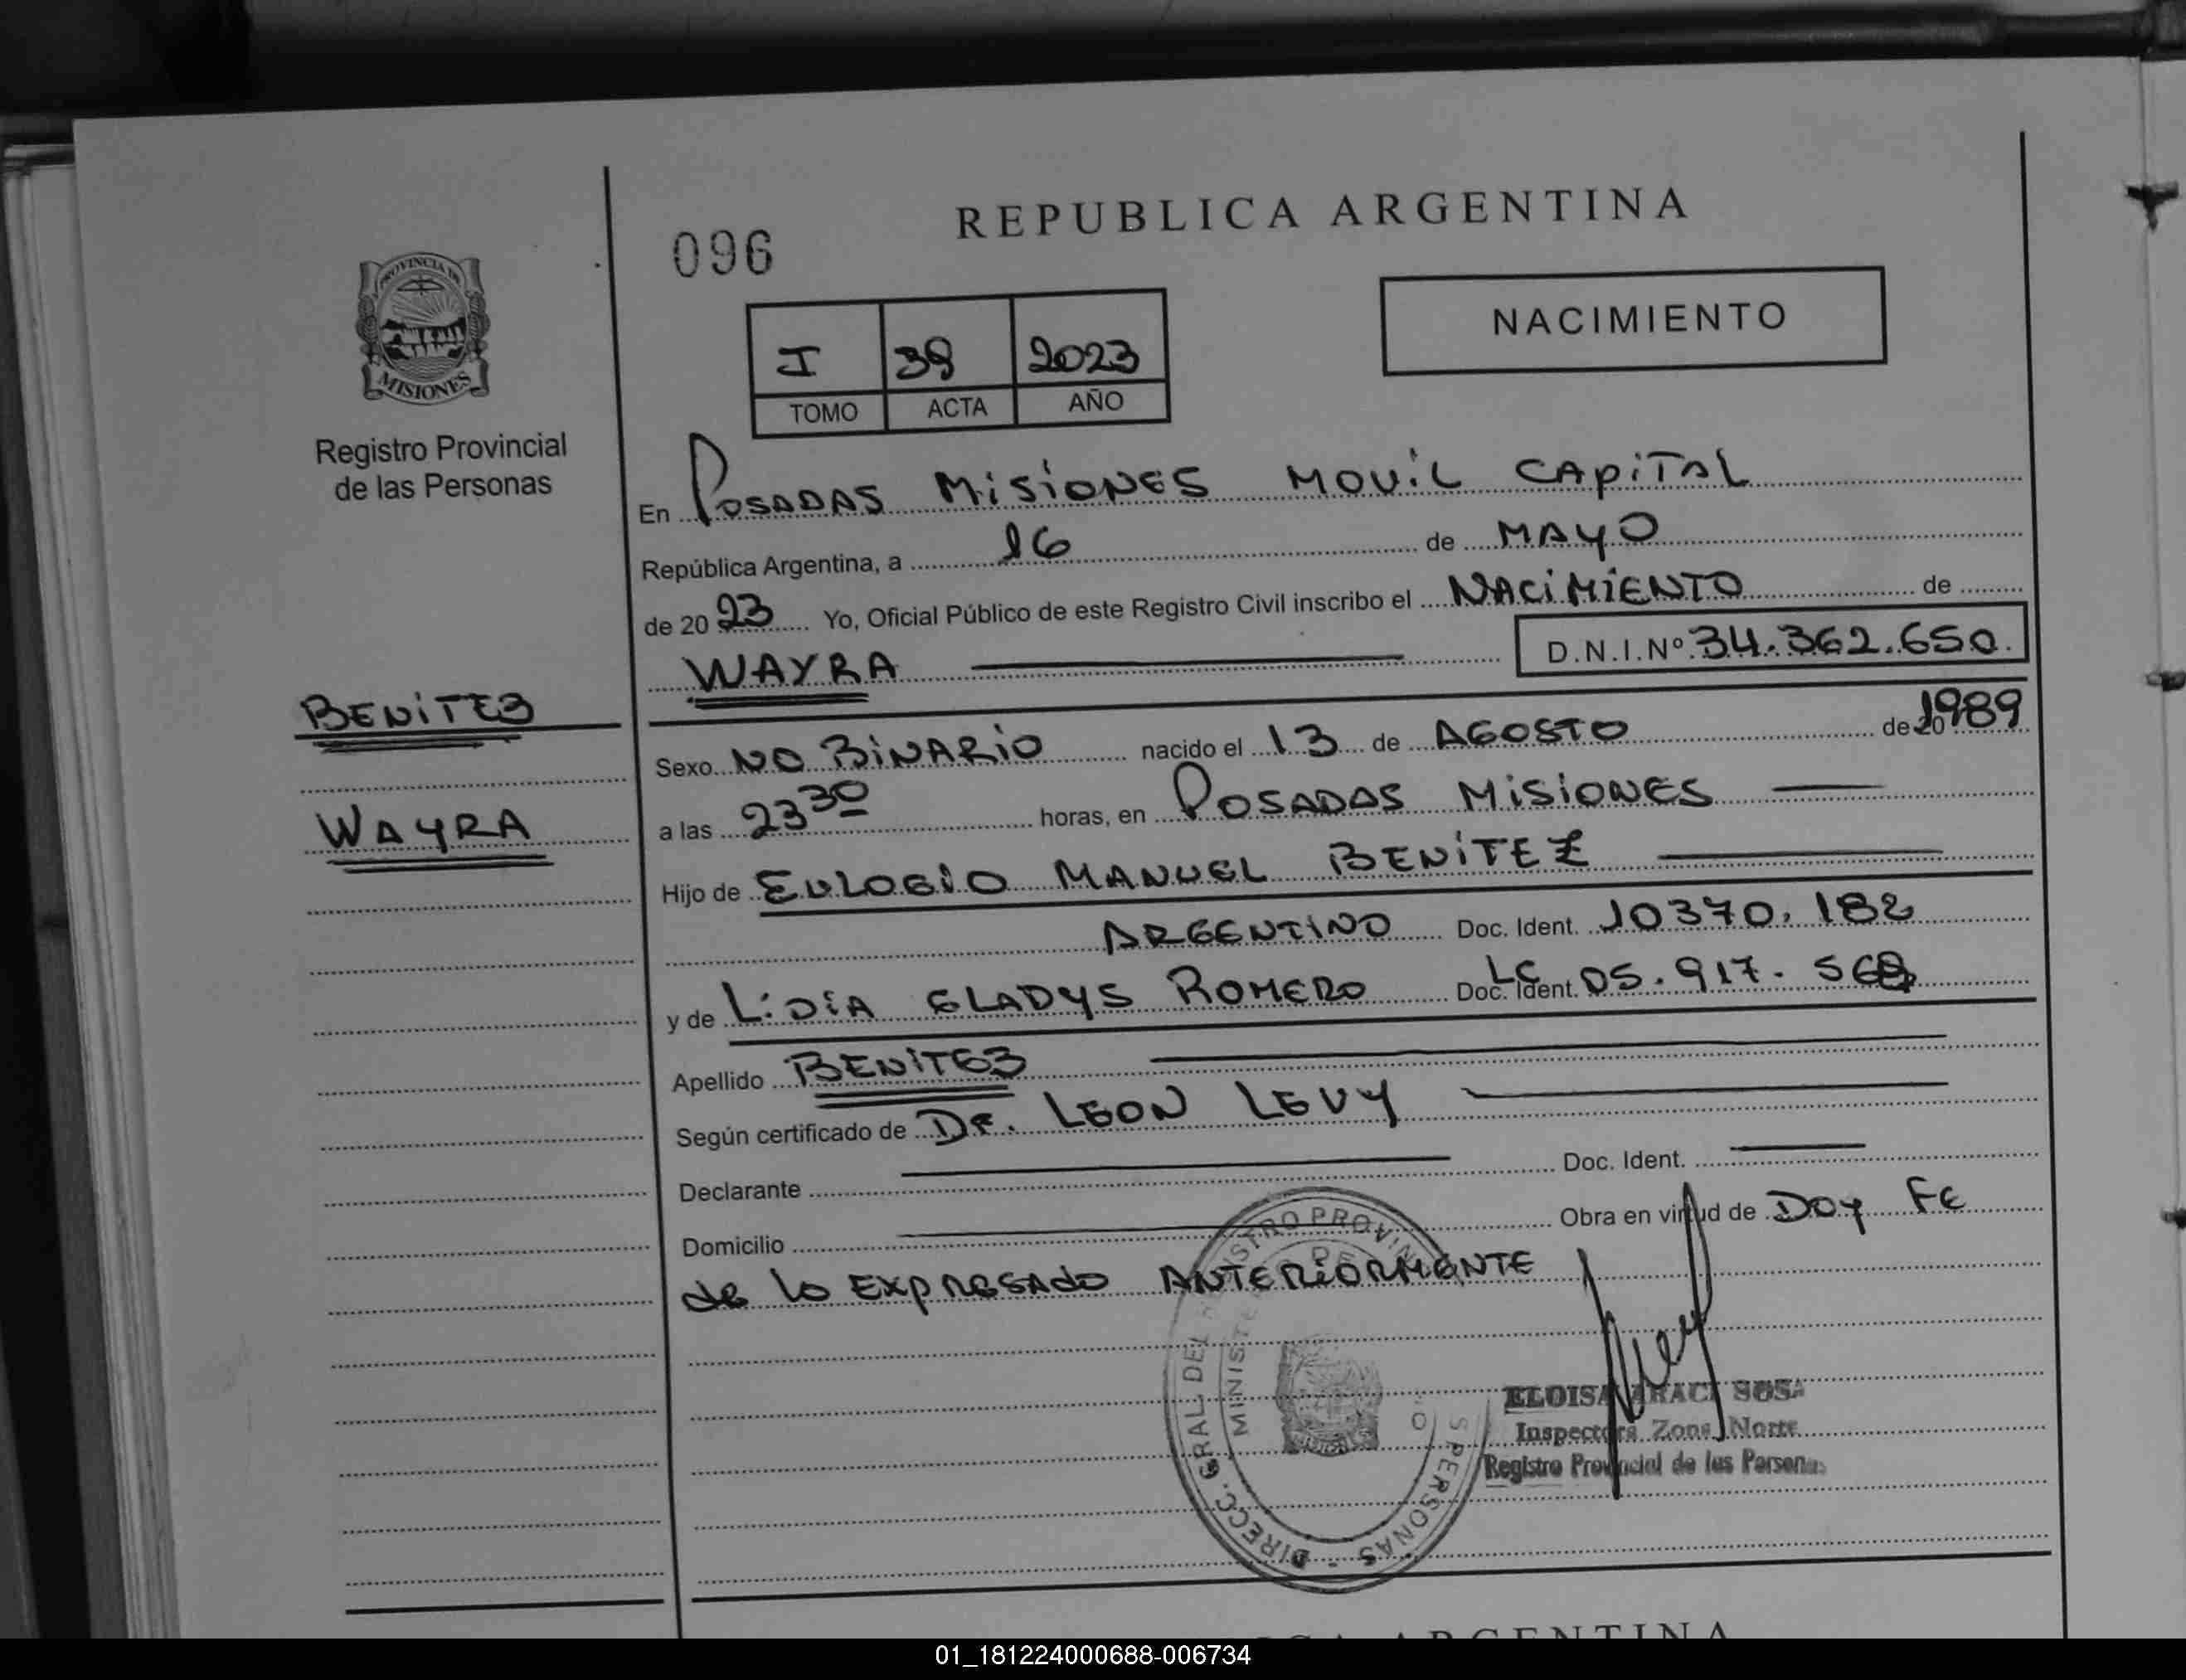 REPUBLICA ARGENTINA
096
NACIMIENTO
PROVINCIA DE
MISIONES
Registro Provincial
de las Personas
I 39 2023
TOMO ACTA AÑO
En POSADAS MISIONES MOVIL CAPITAL
República Argentina, a 16 de MAYO
de 20 23 Yo, Oficial Público de este Registro Civil inscribo el NACIMIENTO de
WAYRA D.N.I.Nº 34.362.650.
BENITEZ
WAYRA
Sexo NO BINARIO nacido el 13 de AGOSTO de 20 1989
a las 23 30 horas, en POSADAS MISIONES
Hijo de EULOGIO MANUEL BENITEZ
ARGENTINO Doc. Ident. 10370.182
y de LIDIA GLADYS ROMERO Doc. Ident. LC 05.917.
Apellido BENITEZ
Según certificado de Dr. LEON LEVY
Declarante Doc. Ident.
Domicilio Obra en virtud de DOY FE
de lo EXPRESADO ANTERIORMENTE
DIRECC. GRAL. DEL REGISTRO PROVIN
S PERSONAS
MINISTE
DE
ELOISA ARACI SOSA
Inspectora Zona Norte
Registro Provincial de las Personas
ARGENTINA
01_181224000688-006734